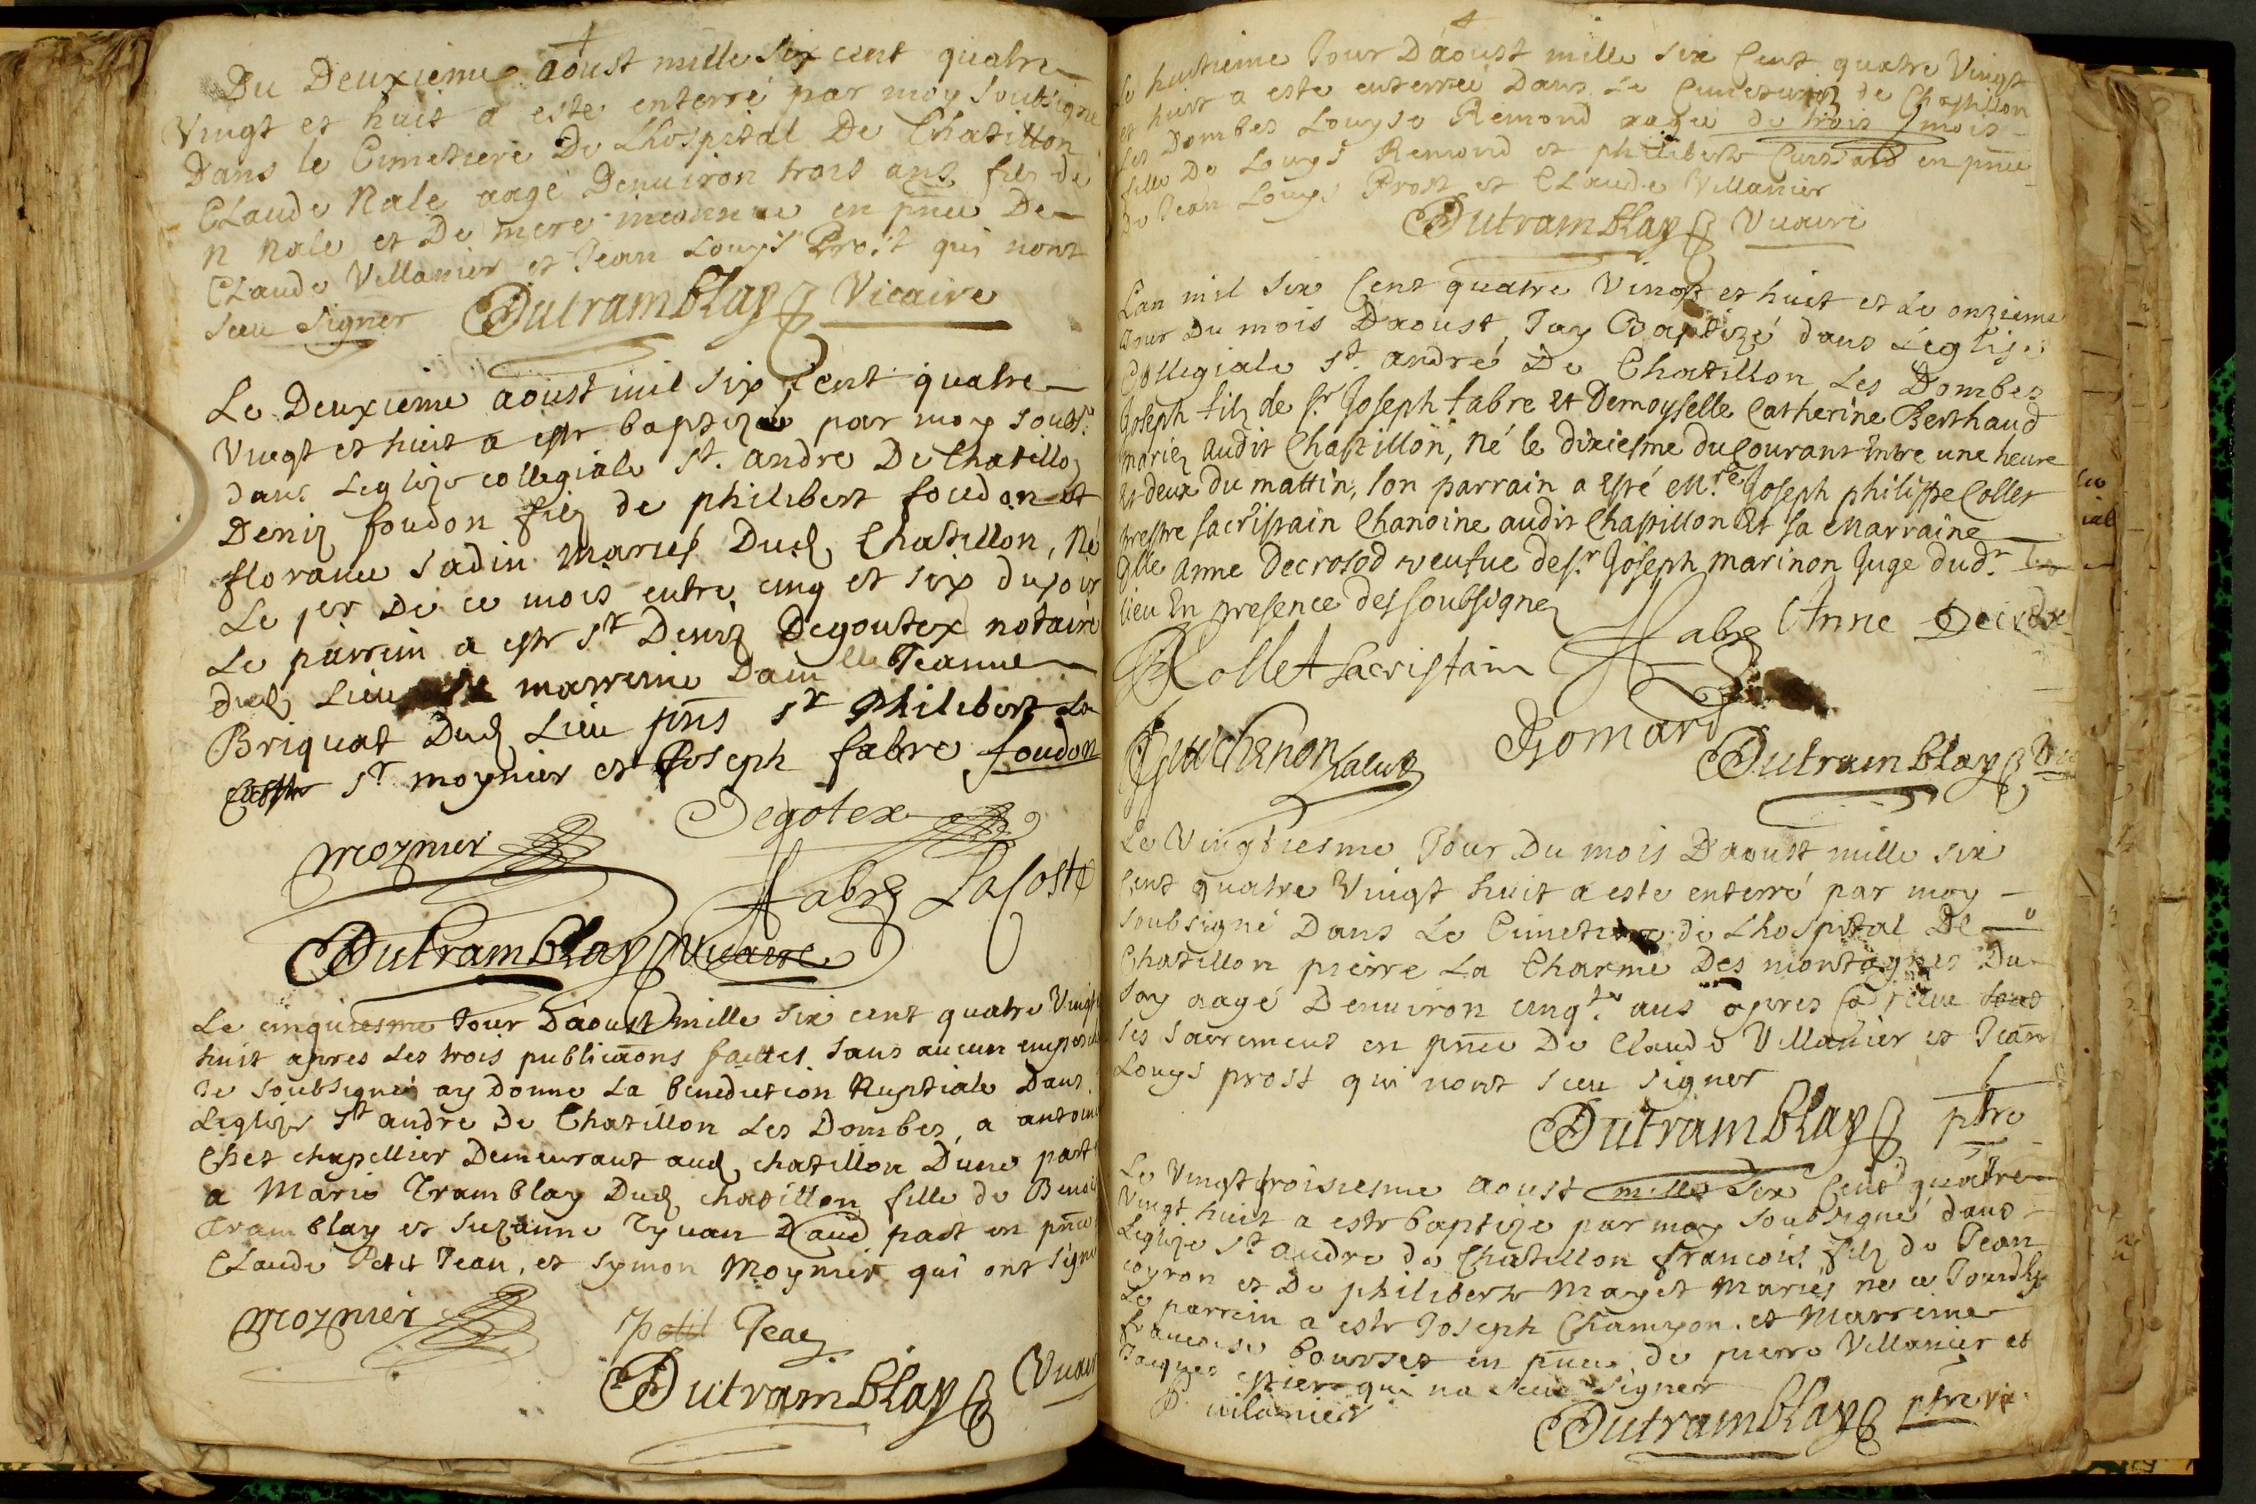 Du Deuxieme aoust mille six cent quatre
Vingt et huit a este enterré par moy Soubsigne
Dans le Cimetiere De Lhospital De Chatillon
CLaude Nale aagé Denuiron trois ans fils de
n Nale et De mere inconnue en pnce De
CLaude Villanier et Jean Louys Prost qui nont
Sceu Signer Dutramblay Vicaire
Le Deuxieme aoust mil six cent quatre
Vingt et huit a este baptizé par moy soubs.
dans Leglize collegiale st. andre De Chatillo
Deniz foudon filz de philibert foudon et
florance sadin mariés Dud Chatillon, Né
Le per De ce mois entre cinq et six du soir
Le parrein a este sr Deniz Degoutex notaire
dud Lieu marreine Dam lle Jeanne
Briquat Dud Lieu pns sr philibert La
coste sr moynier et Joseph fabre foudon
Degotex
moynier
fabre LaCoste
Dutramblay Vicaire
Le cinquiesme Jour Daoust mille six cent quatre Vingt
huit apres Les trois publicaons faittes sans aucun empes
Je soubsigné ay donne La benediction Nuptiale Dans
Leglize st andre De Chatillon Les Dombes, a antoine
chapellier Demeurant aud chatillon Dune part
a Marie Tramblay Dud chatillon fille de Benoist
Tramblay et suzanne Tyuan Daud part en pnce
CLaude Petit Jean, et Symon Moynier qui ont signé
moynier
petit Jean
Dutramblay Vicaire
Le huitieme Jour Daoust mille six Cent quatre Vingt
et huit a este enterree Dans Le Cimetiere de Chastillon
Les Dombes Louyse Remond aagée de trois mois
fille De Louys Remond et philiberte en pnce
De Jean Louys Prost et CLaude Villanier
Dutramblay Vicaire
Lan mil six Cent quatre Vingt et huit et Le onzieme
Jour Du mois Daoust, Jay Baptizé dans Léglise
Collegiale st. andré De Chatillon Les Dombes
Joseph filz de sr. Joseph fabre et Demoyselle Catherine Berthaud
mariez audit Chastillon, né le dixiesme du Courant Entre une heure
et deux du mattin, son parrain a esté Mre. Joseph philippe Collet
prestre sacristain Chanoine audit Chastillon Et sa Marraine
dlle Anne Decrosod veufue de sr. Joseph marinon Juge dud.
lieu En presence des soubsignez
Collet sacristain fabre Anne Decrose
Guichenon Gomard
Dutramblay
Le Vingtiesme Jour Du mois Daoust mille six
Cent quatre Vingt huit a este enterré par moy
soubsigné Dans Le Cimetiere de Lhospital De
Chatillon pierre La Charme Des montagnes Du
aagé Denuiron cinqte ans apres receu tous
ses sacremens en pnce De Claude Villanier et Jean
Louys prost qui nont sceu signer
Dutramblay ptre
Le Vingt troisiesme aoust mille six Cent quatre
Vingt huit a este baptize par moy soubsigné dans
Leglize st andre de Chatillon francois filz de Jean
coyron et De philiberte mayet Mariés ne ce Jourdhuy
Le parrein a este Joseph Champon. et Marreine
francoise bourset en pnce de pierre Villanier et
Jacques qui na sceu signer
P. uilanier
Dutramblay ptre vic.